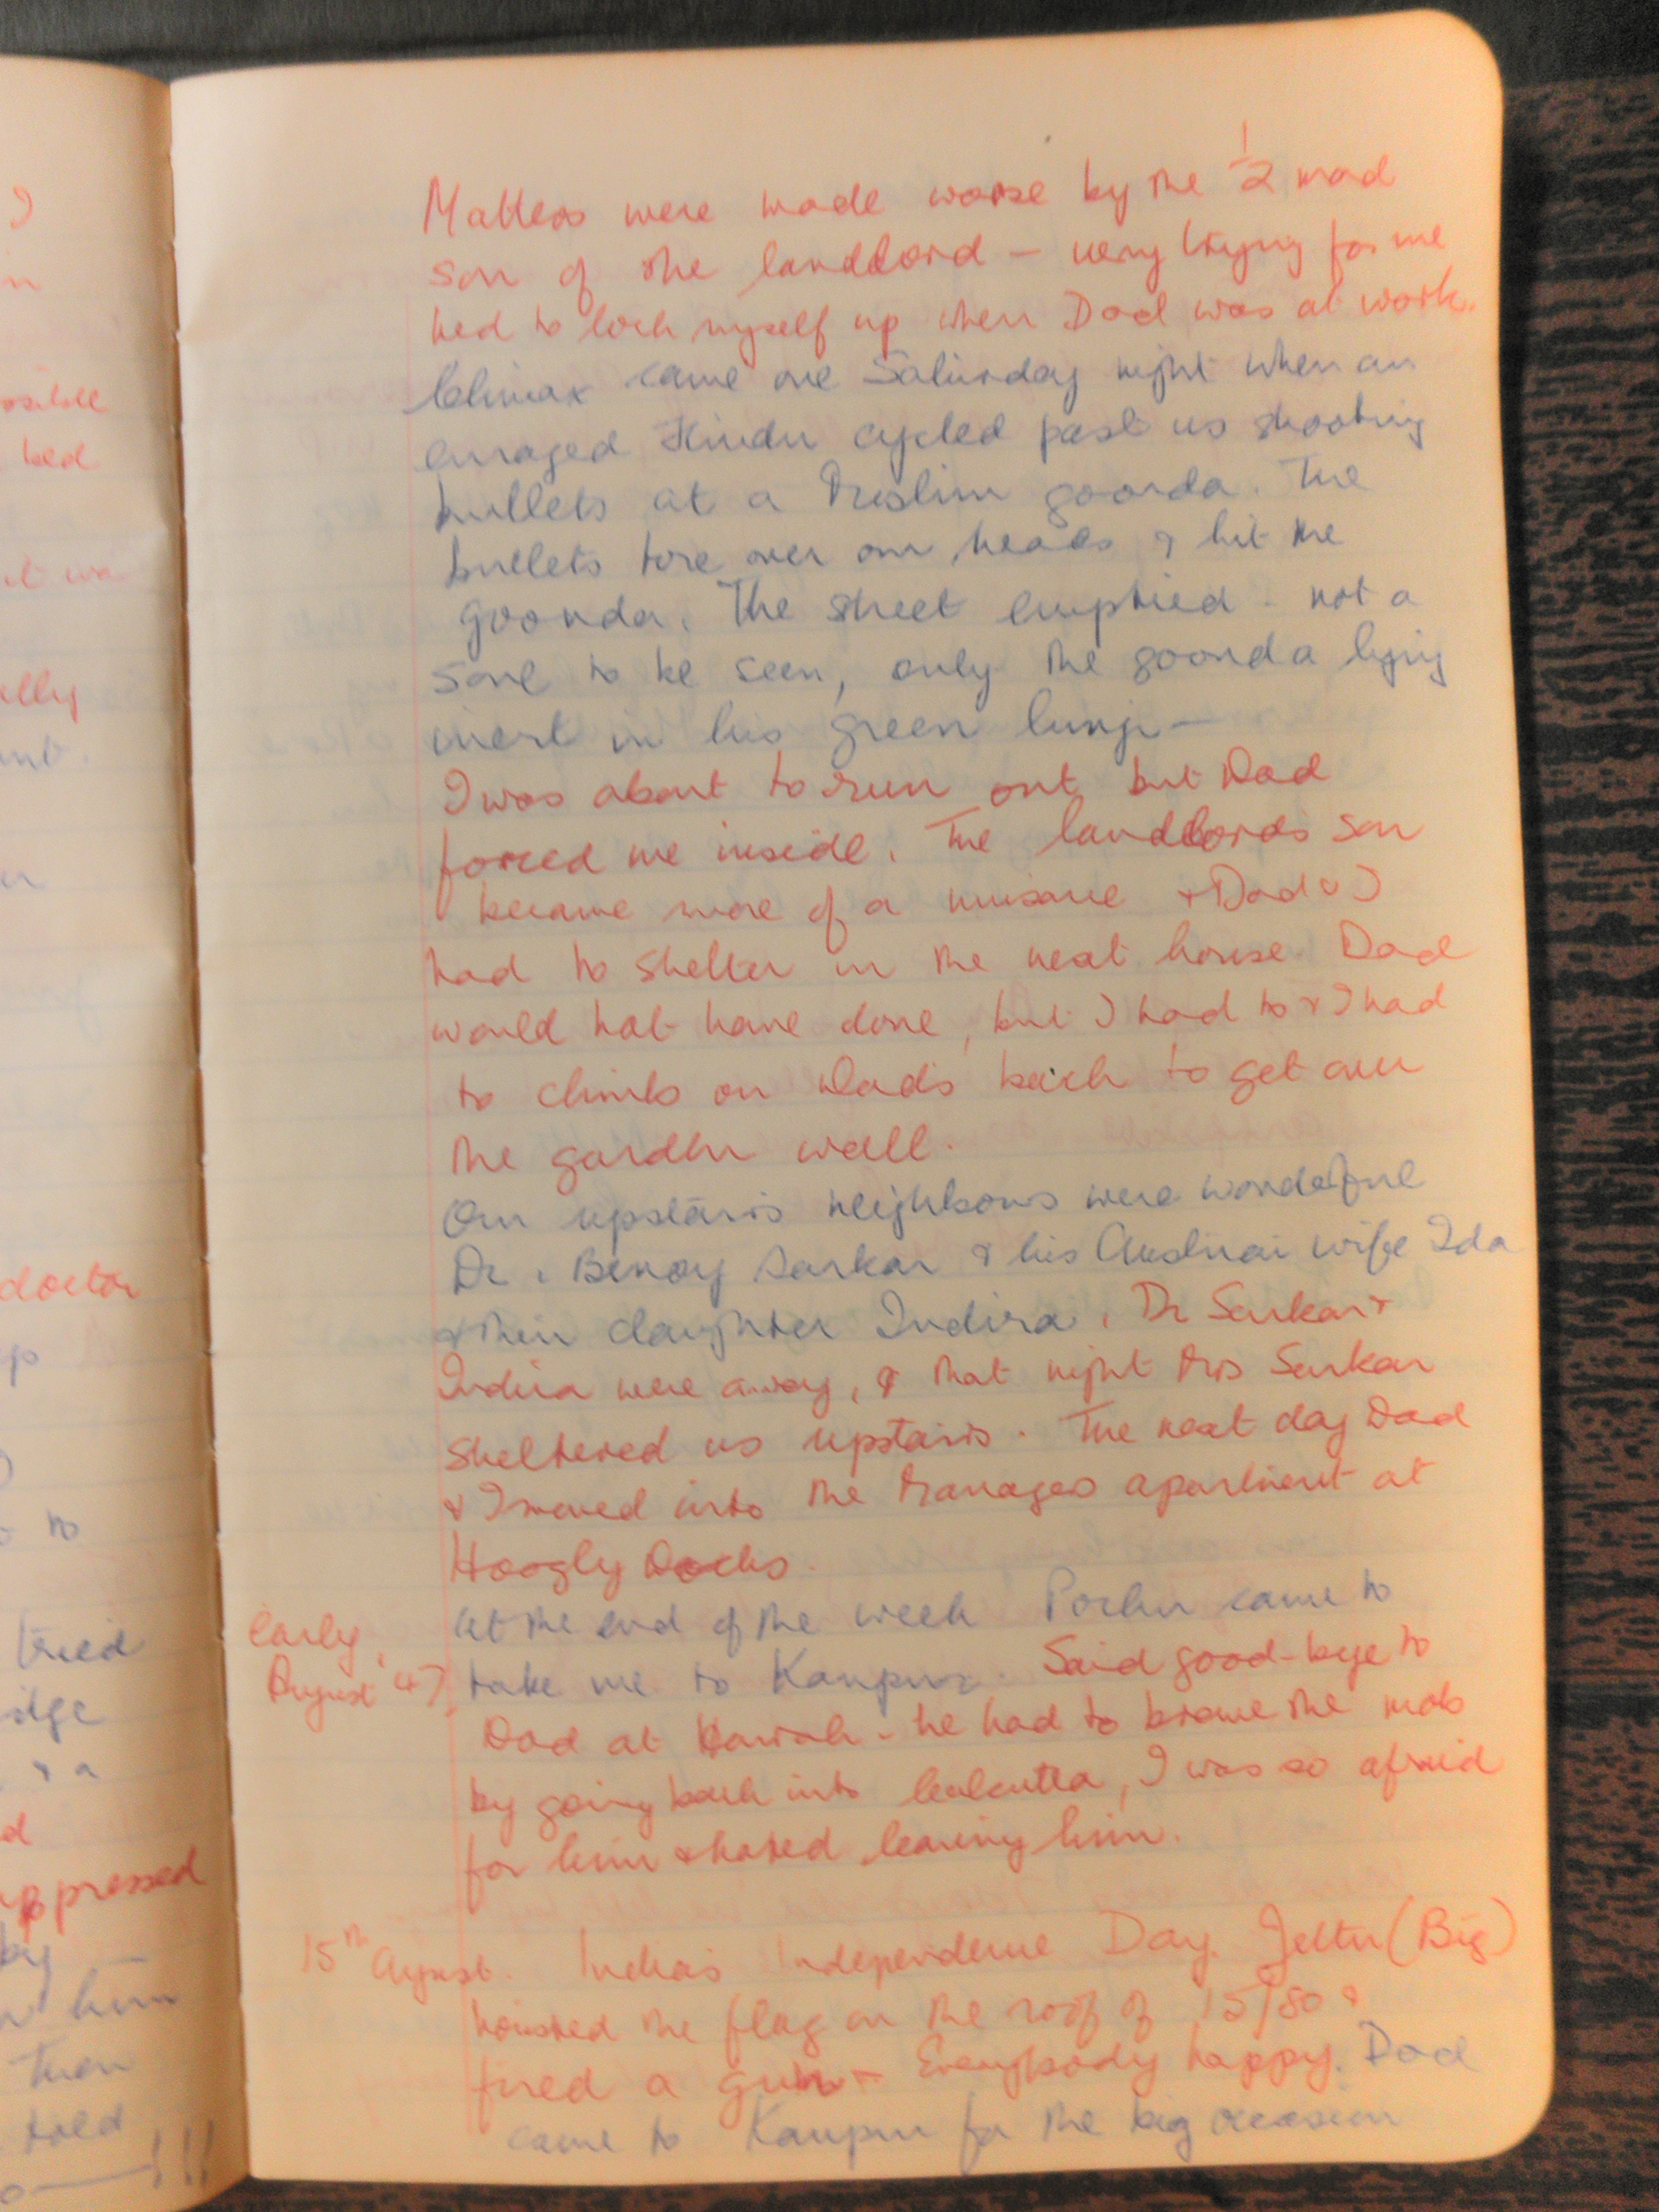 Matters were made worse by the ½ mad
son of the landlord – very trying for me
had to lock myself up when Dad was at work.
Climax came one Saturday night when an
enraged Hindu cycled past us shooting
bullets at a Muslim goonda. The
bullets tore over our heads & hit the
goonda. The street emptied - not a
soul to be seen, only the goonda lying
inert in his green lungi –
I was about to run out, but Dad
forced me inside. The landlords son
became more of a nuisance & Dad & I
had to shelter in the next house. Dad
would not have done, but I had to & I had
to climb on Dad's back to get over
the garden wall.
Our upstairs neighbours were wonderful
Dr. Benoy Sarkar & his Austrian wife Ida
& their daughter Indira. Dr Sarkar &
Indira were away, & that night Mrs Sarkar
sheltered us upstairs. The next day Dad
& I moved into the Managers apartment at
Hoogly Docks.
Early August '47
At the end of the week came to
take me to Kanpur. Said good-bye to
Dad at Howrah - he had to brave the mob
by going back into Calcutta, I was so afraid
for him & hated leaving him.
15th August. India's Independence Day. (Big)
hoisted the flag on the roof of 15/80 &
fired a gun – Everybody happy. Dad
came to Kanpur for the big occasion
doctor
tried
&  a
told